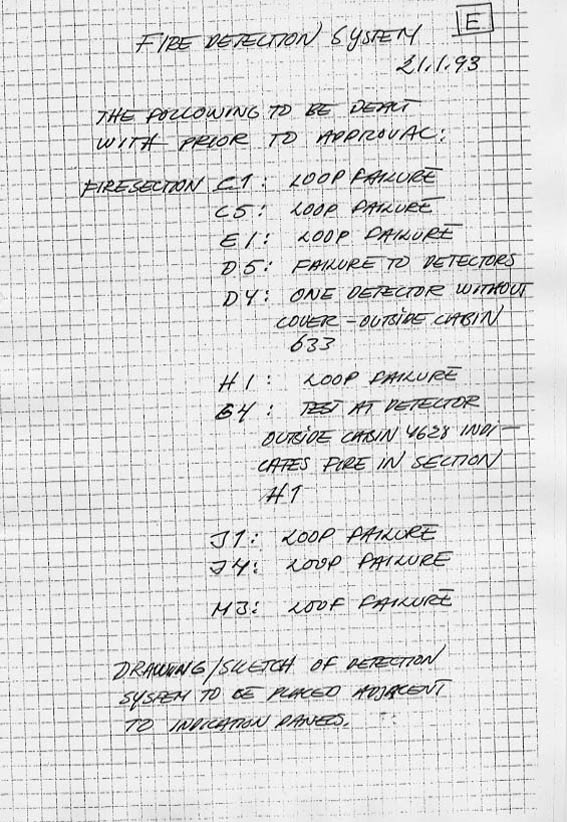 E
FIRE DETECTION SYSTEM
21.1.93
THE FOLLOWING TO BE DEALT
WITH PRIOR TO APPROVAL:
FIRESECTION C1: LOOP FAILURE
C5: LOOP FAILURE
E1: LOOP FAILURE
D5: FAILURE TO DETECTORS
D4: ONE DETECTOR WITHOUT
COVER - OUTSIDE CABIN
633
H1: LOOP FAILURE
G4: TEST AT DETECTOR
OUTSIDE CABIN 4628 INDI-
CATES FIRE IN SECTION
H1
J1: LOOP FAILURE
J4: LOOP FAILURE
M3: LOOP FAILURE
DRAWING/SKETCH OF DETECTION
SYSTEM TO BE PLACED ADJACENT
TO INDICATION PANELS.